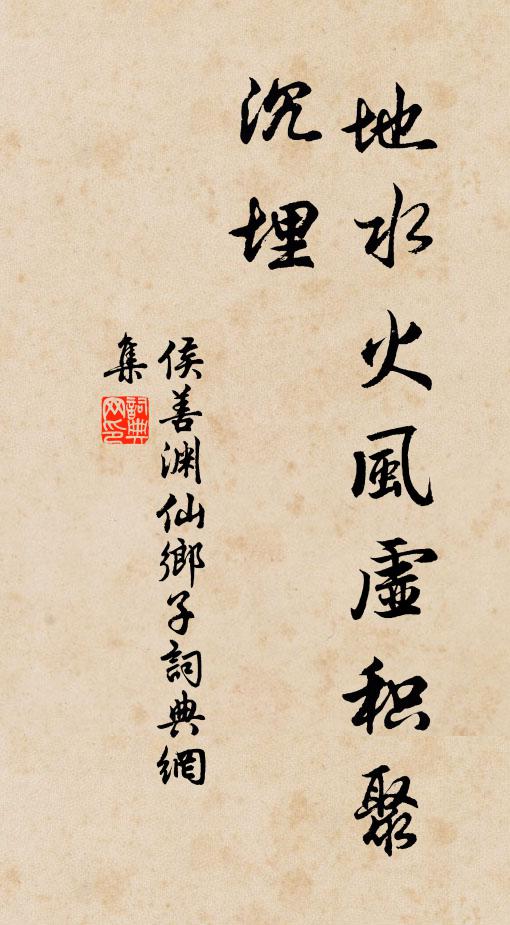 地水火風虛积聚
沉埋
侯善渊仙鄉子詞典網
集
詞典網印